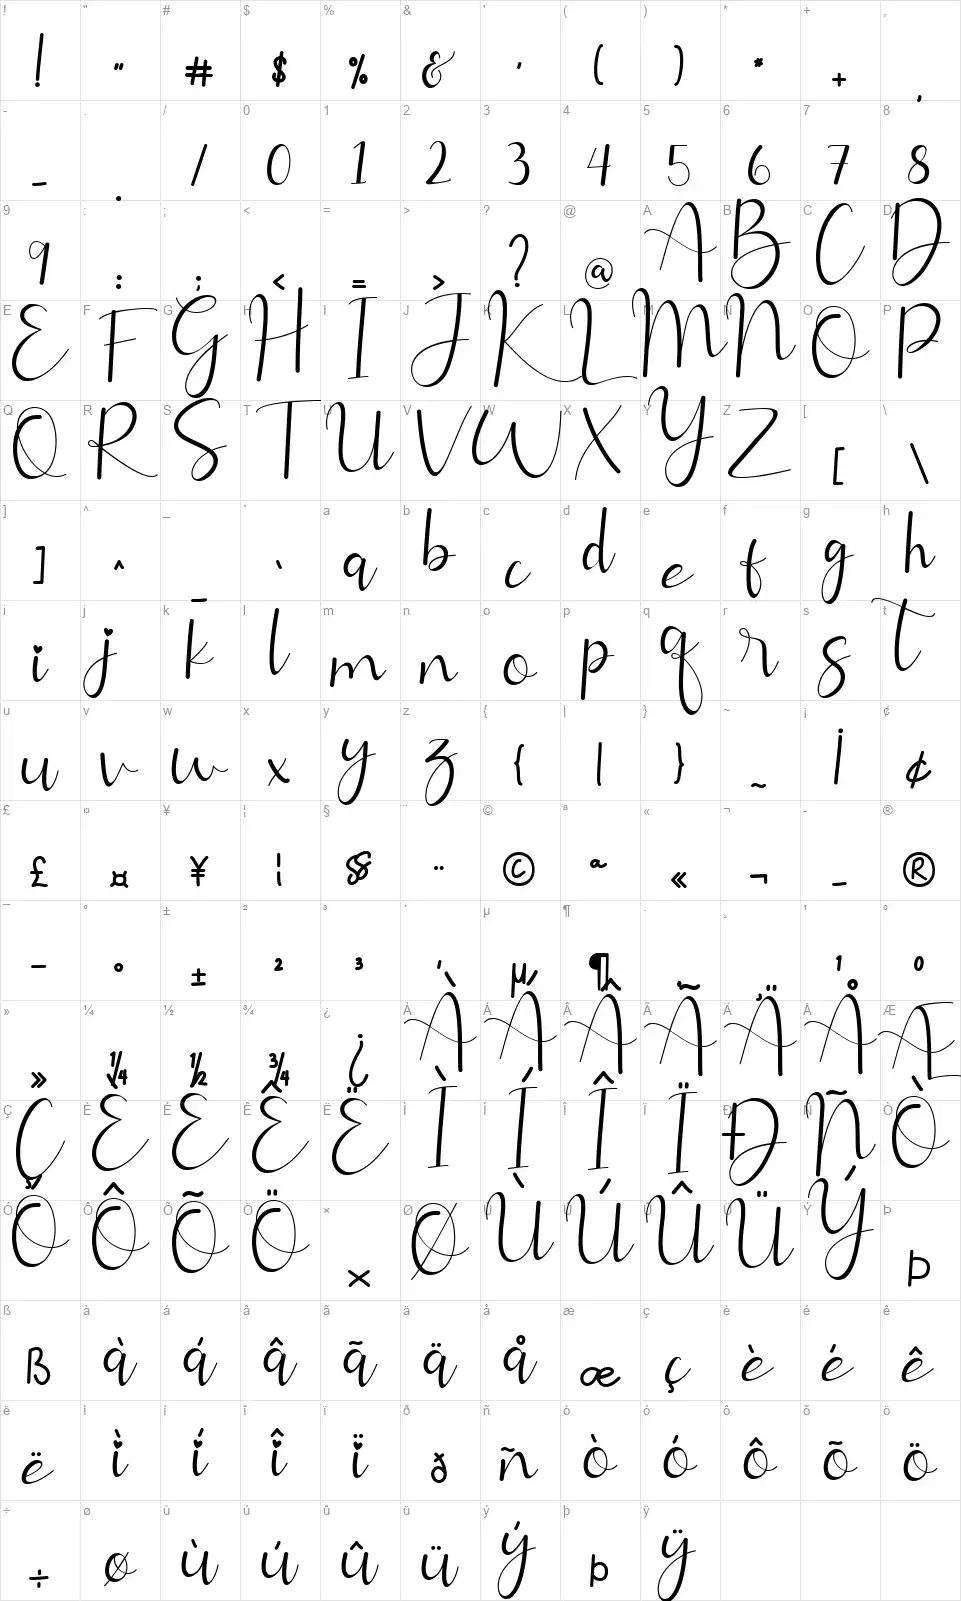 ! " # $ % & ' ( ) * + ,
! " # $ % & ' ( ) * + ,
- . / 0 1 2 3 4 5 6 7 8
- . / 0 1 2 3 4 5 6 7 8
9 : ; < = > ? @ A B C D
9 : ; < = > ? @ A B C D
E F G H I J K L M N O P
E F G H I J K L M N O P
Q R S T U V W X Y Z [ \
Q R S T U V W X Y Z [ \
] ^ _ ` a b c d e f g h
] ^ _ ` a b c d e f g h
i j k l m n o p q r s t
i j k l m n o p q r s t
u v w x y z { | } ~ ¡ ¢
u v w x y z { | } ~ ¡ ¢
£ ¤ ¥ ¦ § ¨ © ª « ¬ - ®
£ ¤ ¥ ¦ § ¨ © ª « ¬ - ®
¯ ° ± ² ³ ´ µ ¶ · ¸ ¹ º
¯ ° ± ² ³ ´ µ ¶ · ¸ ¹ º
» ¼ ½ ¾ ¿ À Á Â Ã Ä Å Æ
» ¼ ½ ¾ ¿ À Á Â Ã Ä Å Æ
Ç È É Ê Ë Ì Í Î Ï Ð Ñ Ò
Ç È É Ê Ë Ì Í Î Ï Ð Ñ Ò
Ó Ô Õ Ö × Ø Ù Ú Û Ü Ý Þ
Ó Ô Õ Ö × Ø Ù Ú Û Ü Ý Þ
ß à á â ã ä å æ ç è é ê
ß à á â ã ä å æ ç è é ê
ë ì í î ï ð ñ ò ó ô õ ö
ë ì í î ï ð ñ ò ó ô õ ö
÷ ø ù ú û ü ý þ ÿ
÷ ø ù ú û ü ý þ ÿ